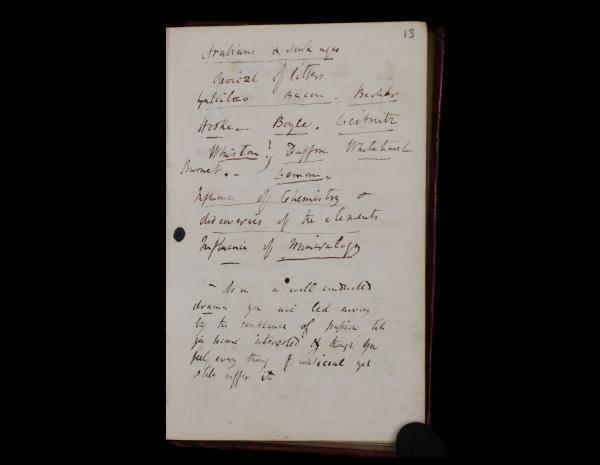 13
Arabians & dark ages
Revival of letters
Gallileo Bacon. Becher
Hooke. Boyle. Leibnitz
Whiston } Buffon Whitehurst
Burnet. Leman.
Influence of Chemistry &
discoveries of the elements
Influence of Mineralogy
- As in a well conducted
drama you are led away
by the semblance of passion till
you become interested & though you
feel every thing artificial yet
still suffer it